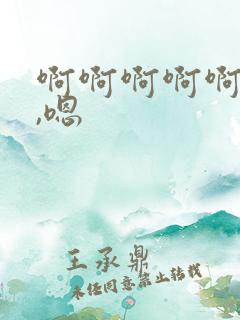 啊啊啊啊啊
,嗯
王承鼎
未经同意禁止转载